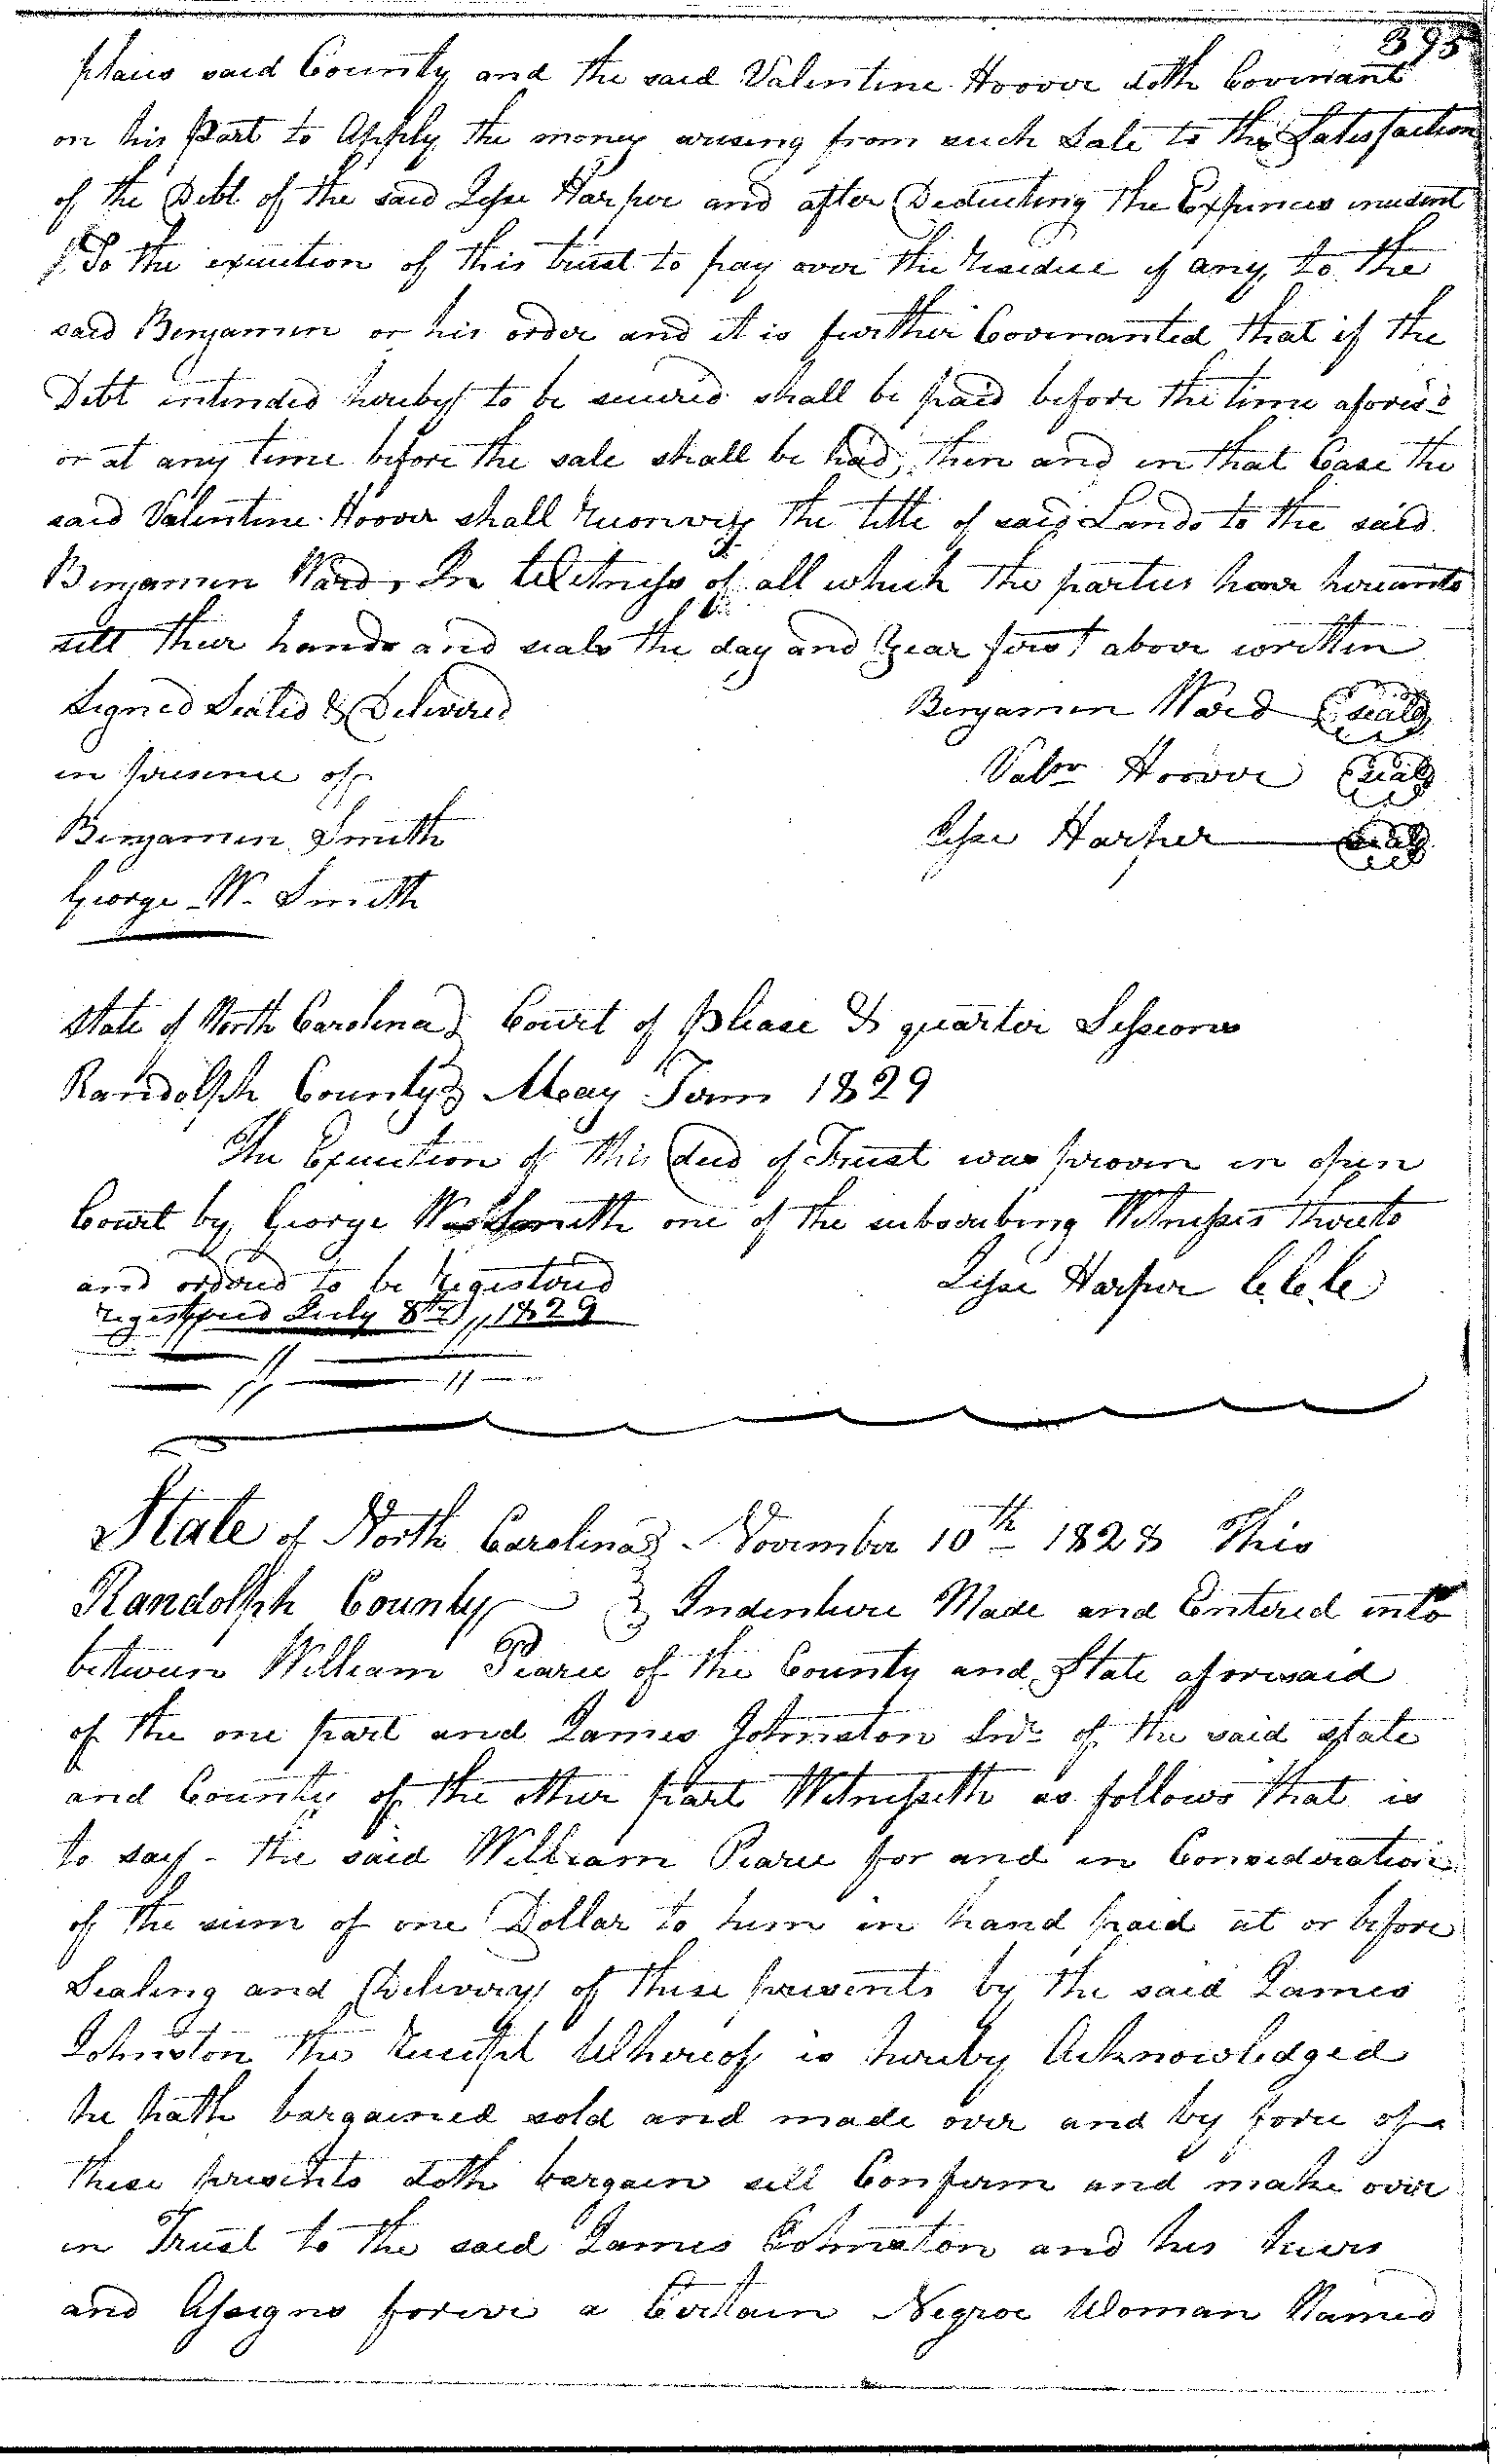 395
plains said County and the said Valentine Hoover doth Covenant
on his Part to Apply the money arising from such Sale to the Satisfaction
of the Debt of the said Jesse Harper and after Deducting the Expences incident
To the execution of this trust to pay over the residue if any to the
said Benjamin or his order and it is further Covenanted that if the
Debt intended hereby to be secured shall be paid before the time aforesd
or at any time before the sale shall be had, then and in that Case the
said Valentine Hoover shall reconvey the title of said Lands to the said
Benjamin Ward, In Witness of all which the parties have hereunto
sett their hands and seals the day and year first above written
Signed Sealed & Delivered Benjamin Ward (seal)
in presence of Valtn Hoover (seal)
Benjamin Smith Jesse Harper (seal)
George W. Smith
State of North Carolina } Court of Please & quarter Sessions
Randolph County } May Term 1829
The Execution of this deed of Trust was proven in open
Court by George W Smith one of the subscribing Witnesses thereto
and ordered to be registered Jesse Harper C.C.C.
registered July 8th 1829
State of North Carolina } November 10th 1828 This
Randolph County } Indenture Made and Entered into
between William Pearce of the County and State aforesaid
of the one part and James Johnston Snr of the said state
and County of the other part Witnesseth as follows that is
to say - the said William Pearce for and in Consideration
of the sum of one Dollar to him in hand paid at or before
Sealing and Delivery of these presents by the said James
Johnston the receipt Whereof is hereby Acknowledged
he hath bargained sold and made over and by force of
these presents doth bargain sell Confirm and make over
in Trust to the said James Johnston and his heirs
and Assigns forever a Certain Negroe Woman Named